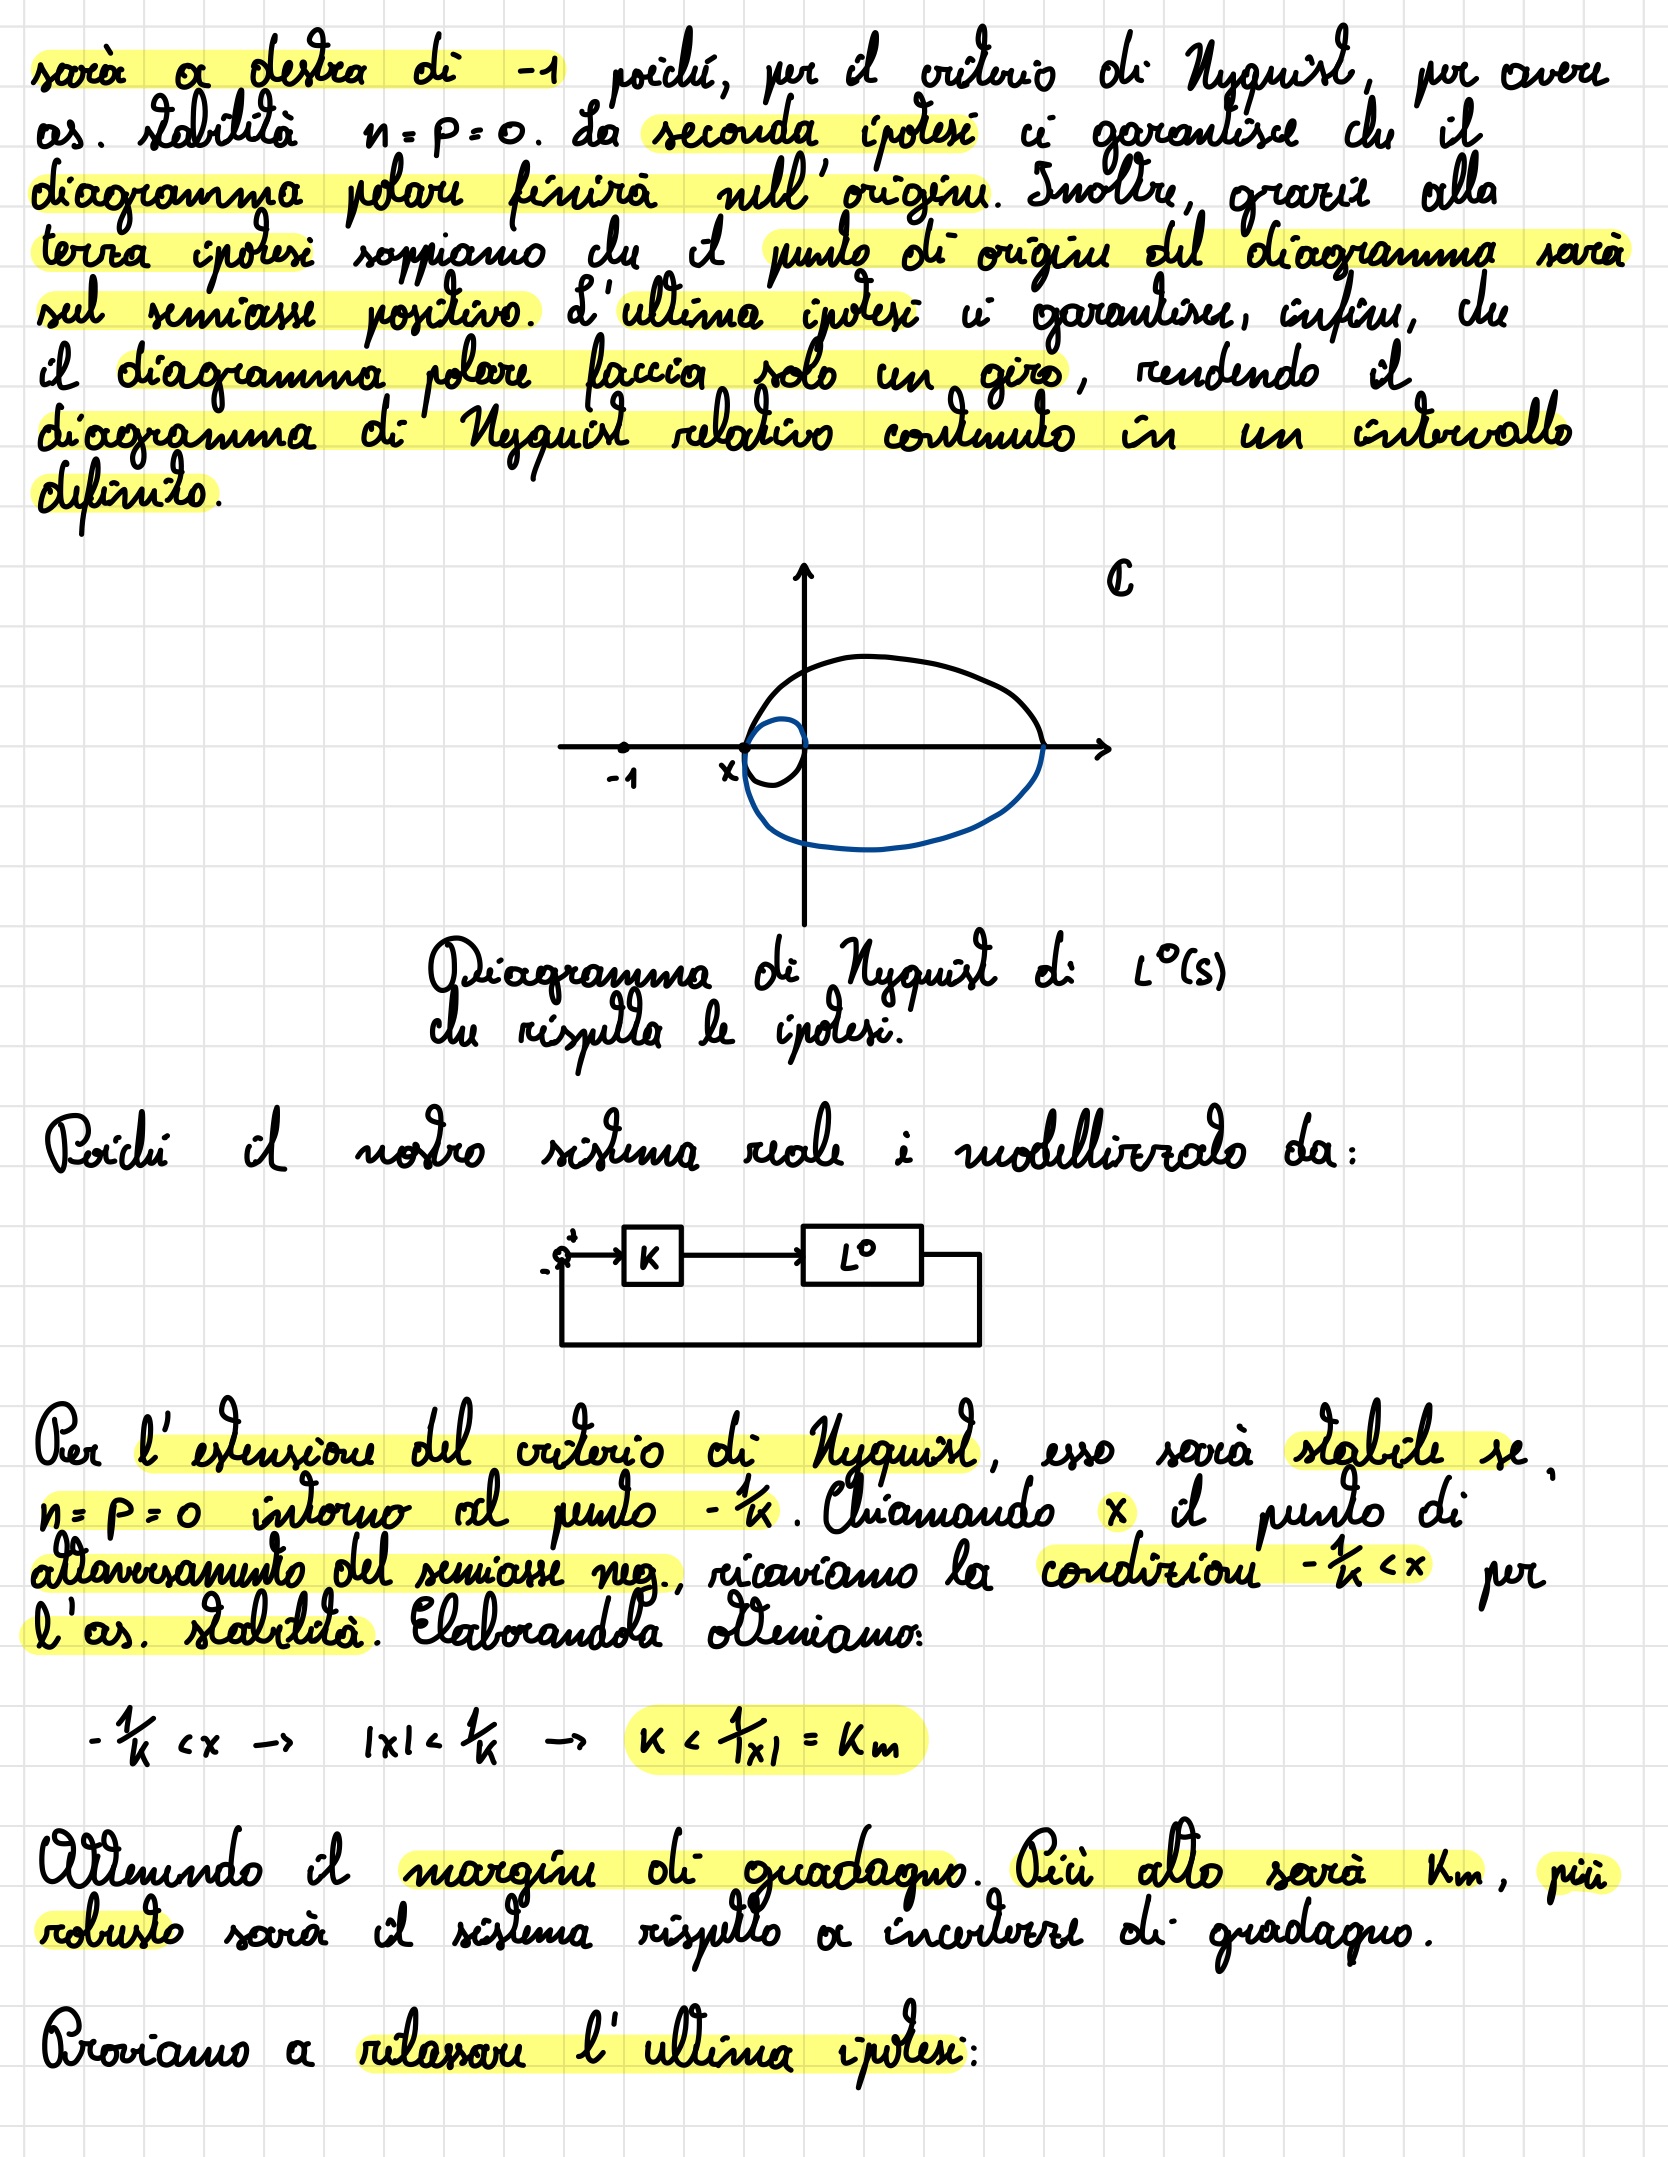 sarà a destra di -1 poiché, per il criterio di Nyquist, per avere
as. stabilità n = P = 0. La seconda ipotesi ci garantisce che il
diagramma polare finirà nell'origine. Inoltre, grazie alla
terza ipotesi sappiamo che il punto di origine del diagramma sarà
sul semiasse positivo. L'ultima ipotesi ci garantisce, infine, che
il diagramma polare faccia solo un giro, rendendo il
diagramma di Nyquist relativo contenuto in un intervallo
definito.
ℂ
-1
x
Diagramma di Nyquist di L°(s)
che rispetta le ipotesi.
Poiché il nostro sistema reale è modellizzato da:
+
-
K
L°
Per l'estensione del criterio di Nyquist, esso sarà stabile se
n = P = 0 intorno al punto -1/K. Chiamando x il punto di
attraversamento del semiasse neg., ricaviamo la condizione -1/K < x per
l'as. stabilità. Elaborandola otteniamo:
-1/K < x → |x| < 1/K → K < 1/|x| = Km
Ottenendo il margine di guadagno. Più alto sarà Km, più
robusto sarà il sistema rispetto a incertezze di guadagno.
Proviamo a rilassare l'ultima ipotesi: